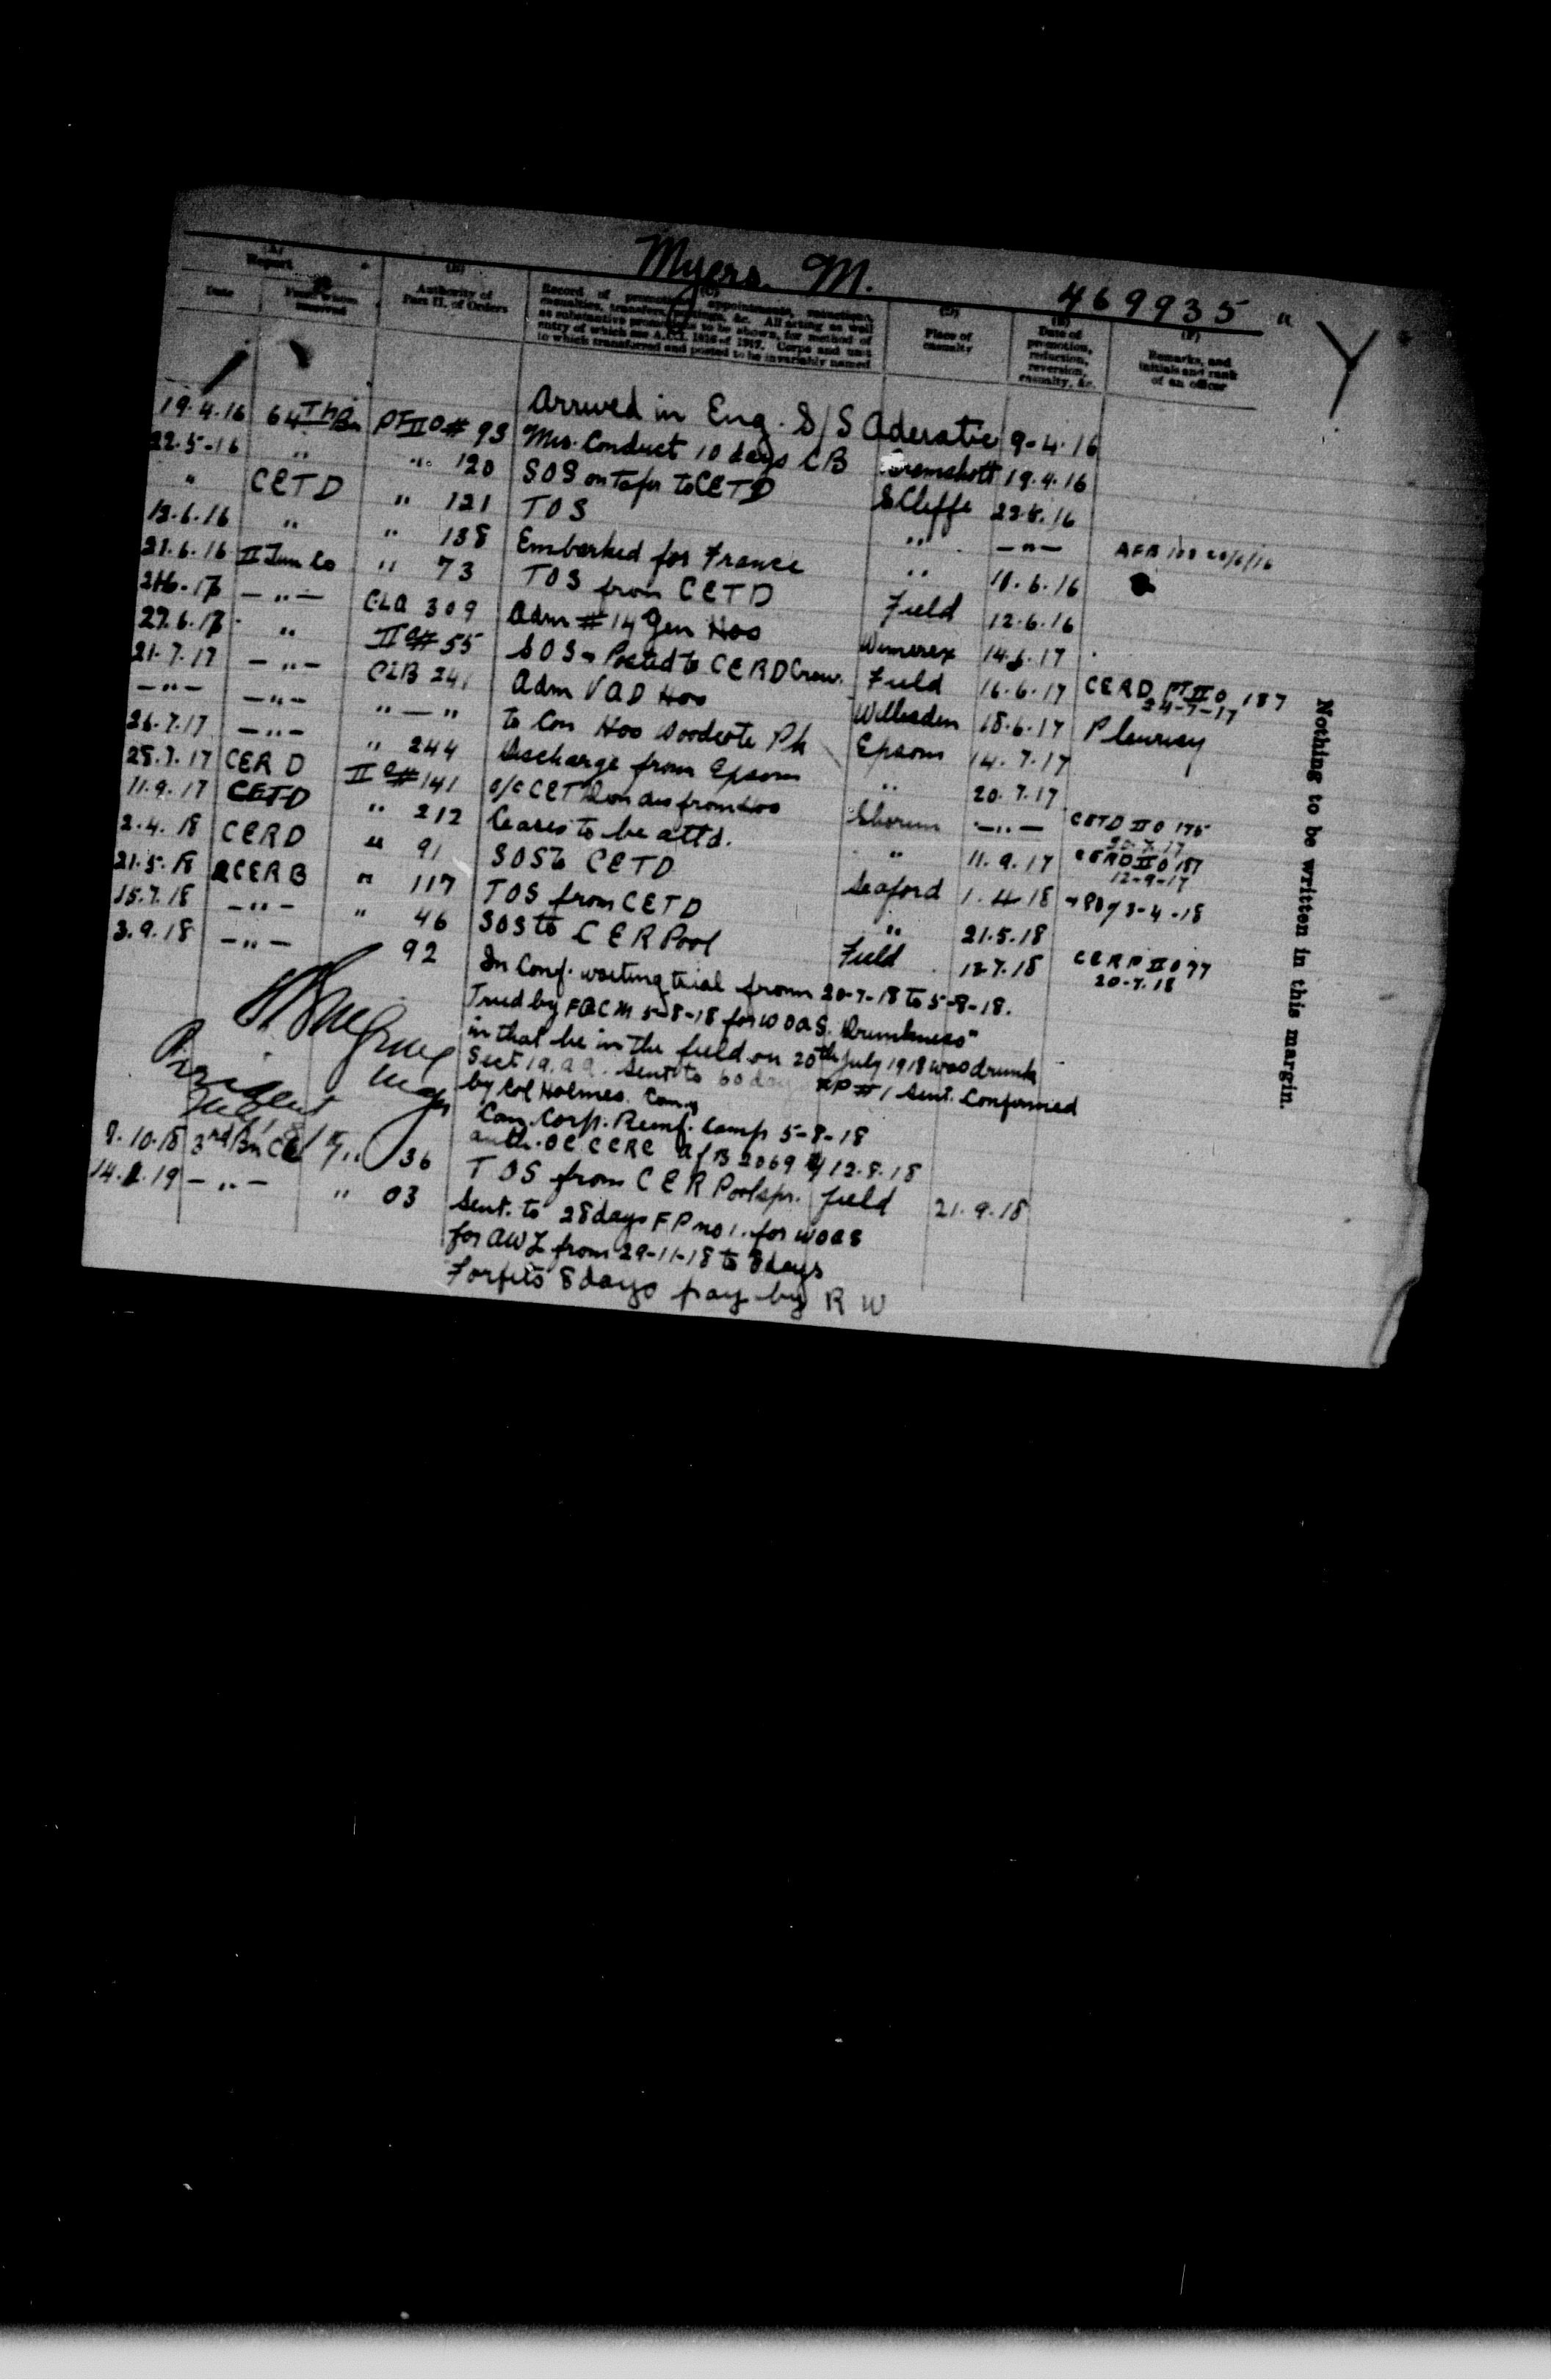 Myers. M. 469935
(A) Report
Date
From whom received
(B) Authority of Part II. of Orders
(C)
Record of promotions, appointments, reductions,
casualties, transfers, postings, &c. All acting as well
as substantive promotions to be shown, for method of
entry of which see A.C.I. 1816 of 1917. Corps and unit
to which transferred and posted to be invariably named
(D) Place of casualty
(E) Date of promotion, reduction, reversion, casualty, &c.
(F) Remarks, and initials and rank of an officer
Arrived in Eng. S/S Aderatic 9-4-16
19.4.16 64TH Bn PT II O # 93 Mis. Conduct 10 days CB Bramshott 19.4.16
22.5-16 " " 120 SOS on Tsfr to CETD SCliffe
" CETD " 121 TOS " —"—
13.6.16 " " 138 Embarked for France " 11.6.16
21.6.16 II Tun Co " 73 TOS from CETD Field 12.6.16
—"— CLA 309 Adm # 14 Gen Hos Wimerex 14.6.17
" II O# 55 SOS Posted to CERD Crow. Field 16.6.17 CERD PT II O 187
24-7-17
21.7.17 —"— CLB 241 Adm VAD Hos Willesden 18.6.17 Pleurisy
—"— —"— "—" to Con Hos Woodcote Pk Epsom 14.7.17
26.7.17 —"— " 244 Discharge from Epsom " 20.7.17
28.7.17 CERD II O# 141 o/c CETD on dis from Hos Shorem —"— CETD II O 175
11.9.17 CETD " 212 Ceases to be attd. " 11.9.17 CERD II O 187
12-9-17
2.4.18 CERD " 91 SOS to CETD Seaford 1.4.18
21.5.18 2CERB " 117 TOS from CETD " 21.5.18
15.7.18 —"— " 46 SOS to CER Pool Field 12.7.18 CERP II O 77
20-7.18
3.9.18 —"— 92 In Conf. waiting trial from 20-7-18 to 5-8-18.
Tried by FGCM 5-8-18 for WOAS. "Drunkness"
in that he in the field on 20th July 1918 was drunk
Sect 19. AA. Sent to 60 days FP # 1 Sent. Confirmed
by Col Holmes. Com'g
Can. Corp. Reinf. Camp 5-8-18
auth. OC CCRC AfB 2069 12.8.18
9.10.18 3rd Bn CE " 36 TOS from CER Pool spr. field 21.9.18
—"— " 03 Sent. to 28 days FP no 1. for WOAS
for AWL from 29-11-18 to 8 days
Forfits 8 days pay by RW
Nothing to be written in this margin.